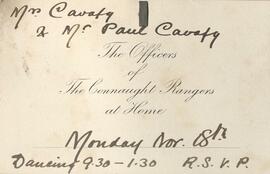 Mrs Cavafy
& Mr Paul Cavafy
The Officers
of
The Connaught Rangers
at Home
Monday Nov. 18th
Dancing 9.30-1.30 R.S.V.P.